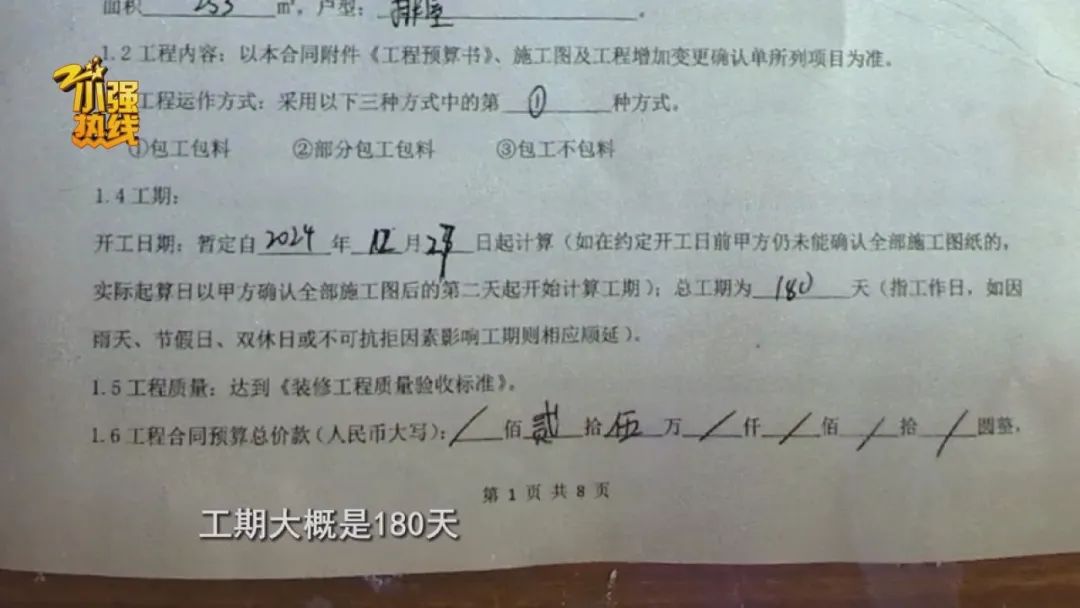 面积 253 m²，户型：排屋。
1.2 工程内容：以本合同附件《工程预算书》、施工图及工程增加变更确认单所列项目为准。
小强热线
工程运作方式：采用以下三种方式中的第 ① 种方式。
①包工包料 ②部分包工包料 ③包工不包料
1.4 工期：
开工日期：暂定自 2024 年 12 月 日起计算（如在约定开工日前甲方仍未能确认全部施工图纸的，
实际起算日以甲方确认全部施工图后的第二天起开始计算工期）；总工期为 180 天（指工作日，如因
雨天、节假日、双休日或不可抗拒因素影响工期则相应顺延）。
1.5 工程质量：达到《装修工程质量验收标准》。
1.6 工程合同预算总价款（人民币大写）：/ 佰 贰 拾 伍 万 / 仟 / 佰 / 拾 / 圆整，
第 1 页 共 8 页
工期大概是180天